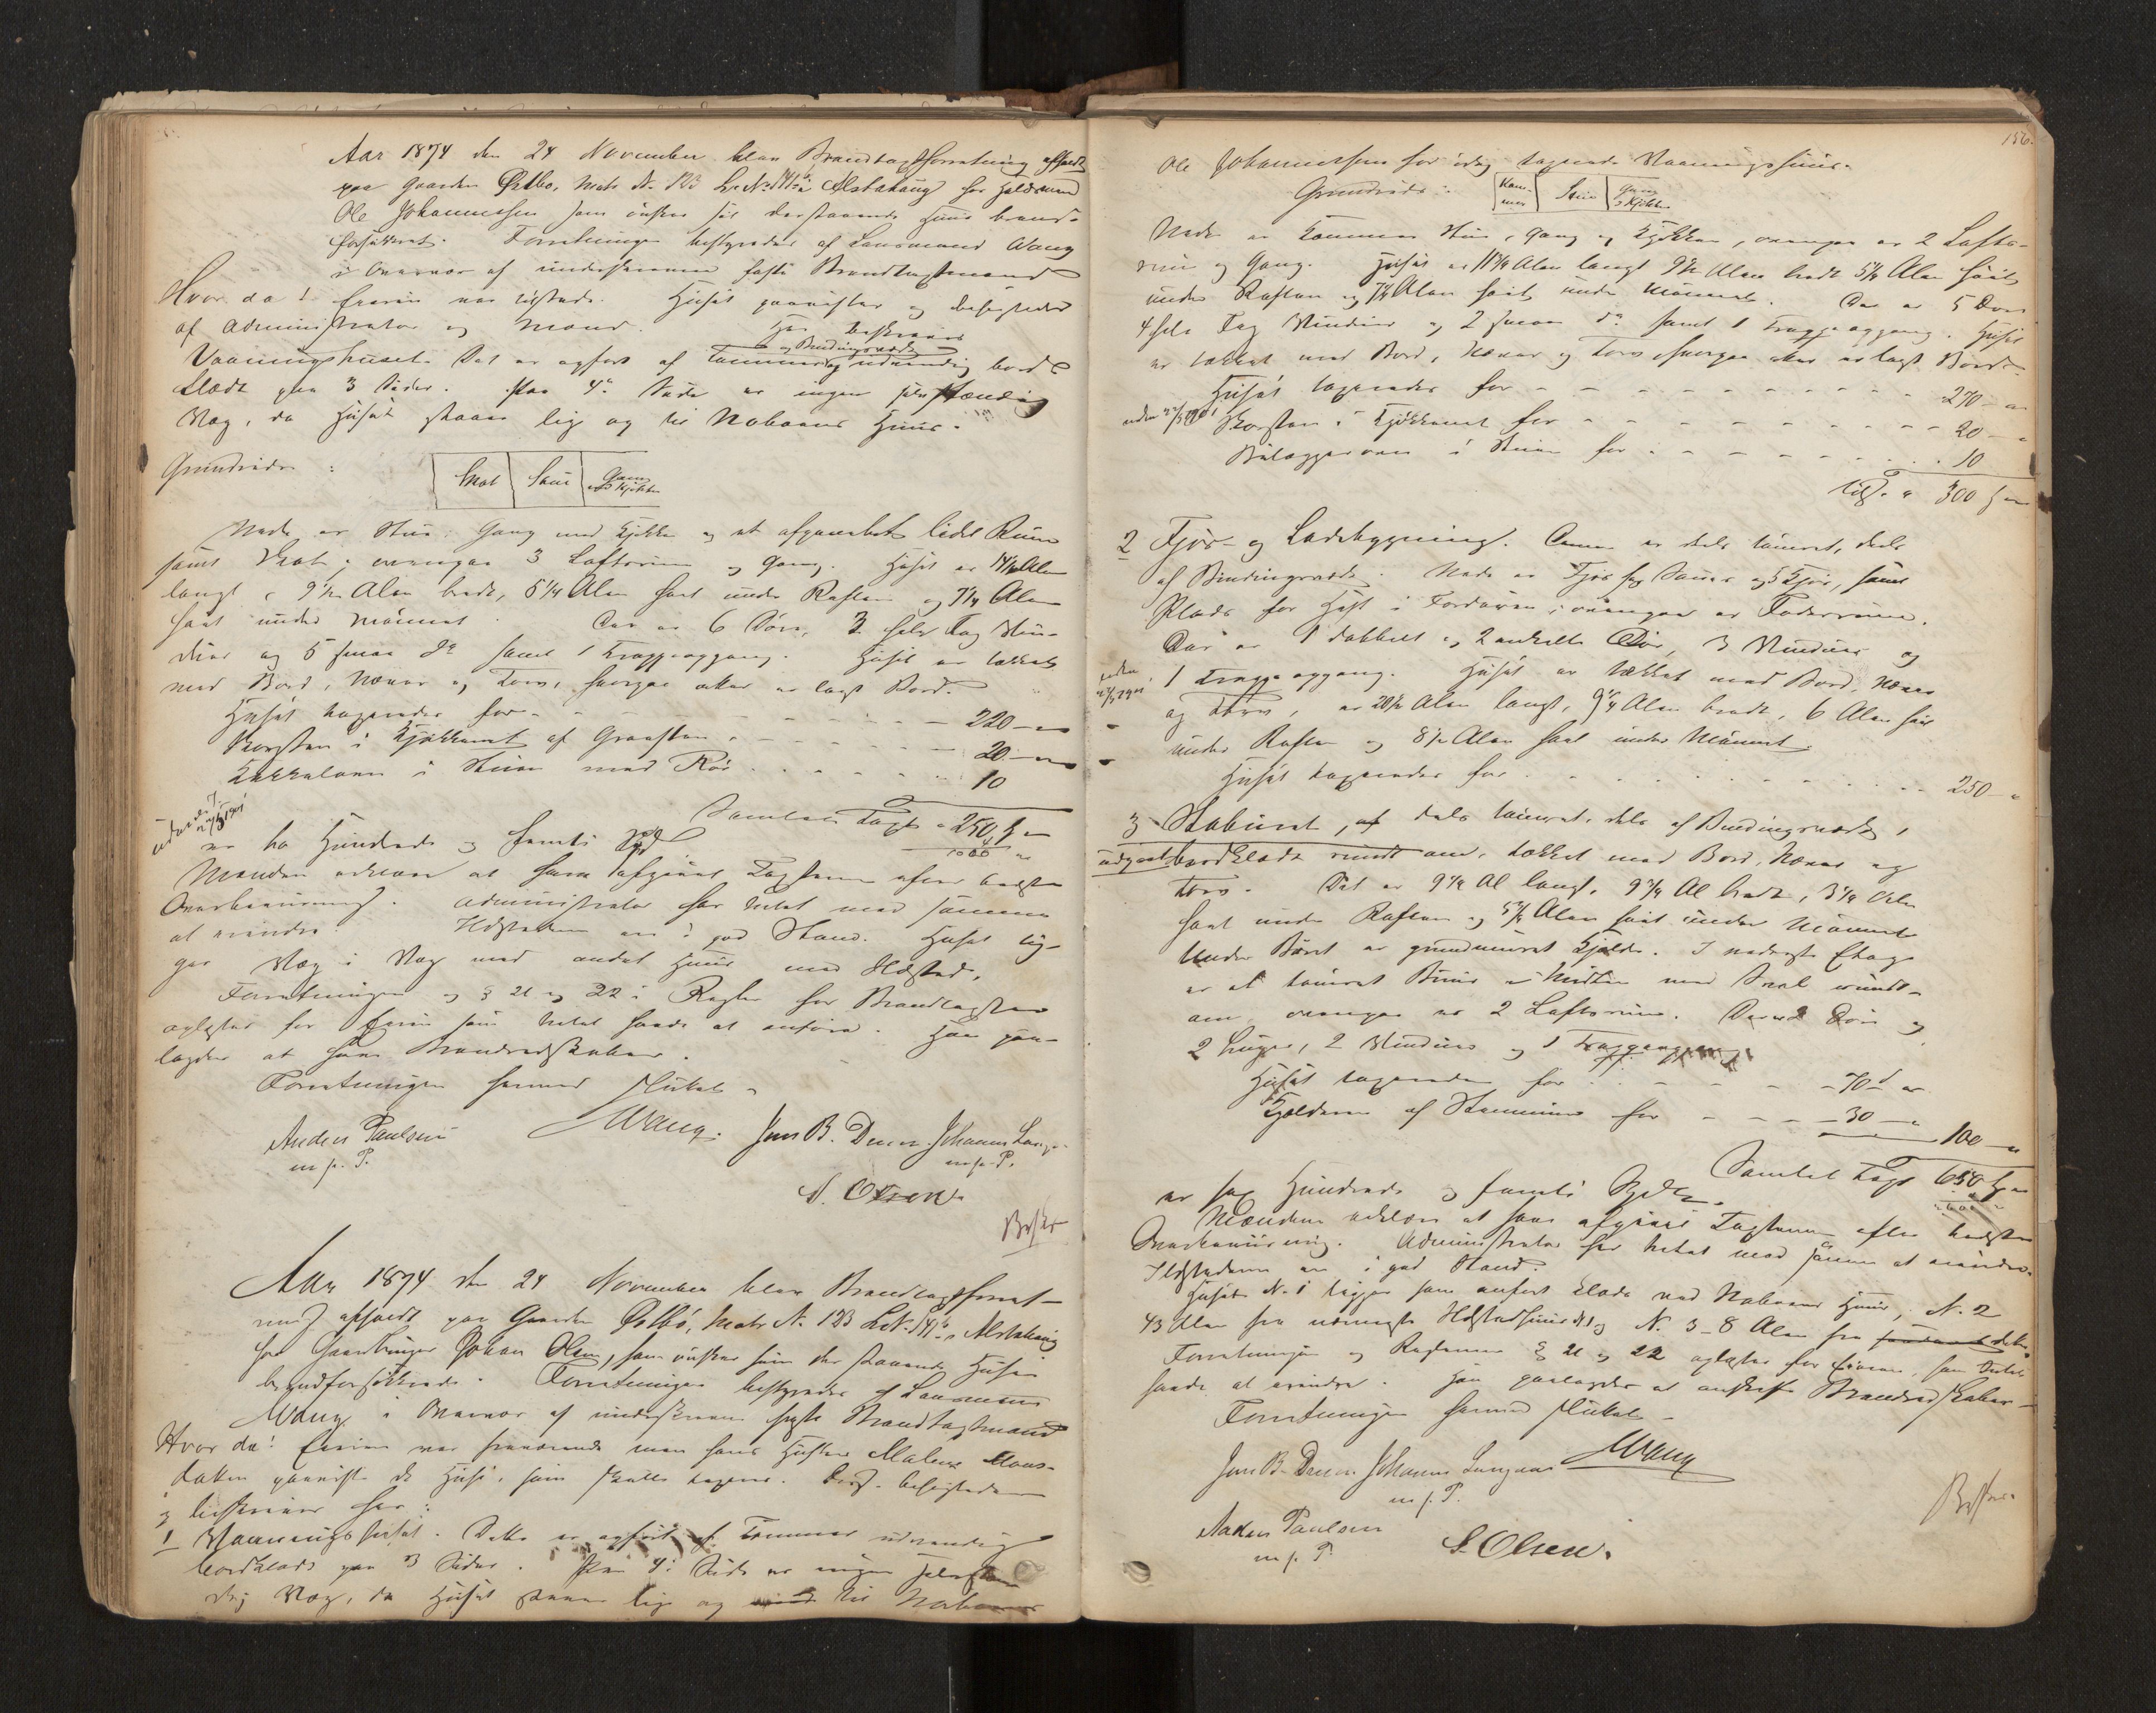 Aar 1874 den 24 November blev Brandtagtsforretning afholdt
paa Gaarden Østbø, Matr No 123 Alstahaug for
Ole Johannessen som ønsker sit derstaaende Huus brand-
forsikkret. Forretningen bestyredes af Lensmand Wang
i Overvær af underskrevne faste Brandtagtsmænd
Hvor da! Eieren var tilstede. Huset paavistes og besigtedes
af Administrator og Mænd. Her beskrives
og Bindingsværk
Vaaningshuset. Det er opført af Tømmer udvendig bord-
klædt paa 3 Sider. Paa 4de Side er ingen selvstændig
Væg, da Huset staaer lige op til Naboens Huus.
Grundrids :
Skot Stue Gang og Kjøkken
Nede er Stue, Gang med Kjøkken og et afpanelet lidet Rum
samt Skot; ovenpaa 3 Loftsrum og Gang. Huset er Alen
langt, 9½ Alen bredt, 5¼ Alen høit under Raften og 7¼ Alen
høit under Mønnet. Der er 6 Døre, 3 hele Fag Vin-
duer og 5 smaa do samt 1 Trappeopgang. Huset er tækket
med Bord, Næver og Torv, hvorpaa atter er lagt Bord.
Huset taxeredes for - - - 220 - "
Skorsten i Kjøkkenet af Graasten - - - 20 - "
Kakkelovn i Stuen med Rør - - - 10
Samlet Taxt " 250 "
1000
er to Hundrede og femti Spd
Mændene erklærer at have afgivet Taxten efter bedste
Overbeviisning. Administrator har Intet mod samme
at erindre. Ildstederne ere i god Stand. Huset lig-
ger Væg i Væg med andet Huus med Ildsted.
Forretningen og § 21 og 22 i Regler for Brandtaxten
oplæstes for Eieren som Intet havde at anføre. Han paa-
lagdes at have Brandredskaber.
Forretningen hermed sluttet
Anders Paulsen Wang. Jens B. Johannes
m. p. P. m. p. P.
S. Olsen
Aar 1874 den 24 November blev Brandtagtsforret-
ning afholdt paa Gaarden Østbø, Matr No 123 Alstahaug
hos Gaardbruger Johan Olsen, som ønsker sine der staaende Huse
brandforsikkrede. Forretningen bestyredes af Lensmand
Wang i Overvær af underskrevne faste Brandtagtsmænd
Hvor da! Eieren var fraværende men hans Hustru Malene Mons-
datter paaviste de Huse, som skulle taxeres. besigtedes
og beskrives her:
1 Vaaningshuset. Dette er opført af Tømmer udvendig
bordklædt paa 3 Sider. Paa 4de Side er ingen selvstæn-
dig Væg, da Huset staaer lige op til Naboens
156.
Ole Johannessens for idag taxerede Vaaningshuus.
Grundrids: Kam-mer Stue Gang og Kjøkken
Nede er Kammer Stue, Gang og Kjøkken, ovenpaa er 2 Lofts-
rum og Gang. Huset er 11¼ Alen langt 9½ Alen bredt 5¼ Alen høit
under Raften og 7¼ Alen høit under Mønnet. Der er 5 Døre
4 hele Fag Vinduer og 2 smaa do samt 1 Trappeopgang. Huset
er tækket med Bord, Næver og Torv hvorpaa atter er lagt Bord.
Huset taxeredes for - - - 270 - "
Skorsten i Kjøkkenet for - - - 20 - "
Bilæggerovn i Stuen for - - - 10
Tils. " 300
2 Fjøs- og Ladebygning. Denne er dels tømret, dels
af Bindingsværk. Nede er Fjøs for Sauer og Kjør, samt
Plads for Hest i Fordøren; ovenpaa er Foderrum.
Der er 1 dobbelt og 2 enkelte Dør, 3 Vinduer og
1 Trappeopgang. Huset er tækket med Bord, Næver
og Torv, er 20½ Alen langt, 9¼ Alen bredt, 6 Alen høit
under Raften og 8½ Alen høit under Mønnet.
Huset taxeredes for - - - 250 - "
3 Staburet, dels tømret, dels af Bindingsværk,
udgaaet bordklædt rundt om, tækket med Bord, Næver og
Torv. Det er 9¼ Al langt, 9¼ Al bredt, 3¼ Alen
høit under Raften og Alen høit under Mønnet
Under Buret er grundmuret Kjelder. I nederste Etage
er et tømret Buur i Midten med Sval rundt-
om, ovenpaa er 2 Loftsrum. Der er 2 Døre og
2 Luger, 2 Vinduer og 1 Trappeopgang
Huset taxeredes for - - - 70 "
Kjelderen af Steenmuur for - - - 30 - "
100 - "
Samlet Taxt 650
er sex Hundrede og femti Spdlr.
Mændene erklærer at have afgivet Taxten efter bedste
Overbeviisning. Administrator har Intet mod samme at erindre.
Ildstederne ere i god Stand.
Huset No 1 ligger som anført klods ved Naboens Huus, No 2
43 Alen fra nærmeste Ildstedhuus No 1 og No 3 - 8 Alen fra
Forretningen og Reglerne § 21 og 22 oplæstes for Eieren, som Intet
havde at erindre. Han paalagdes at anskaffe Brandredskaber -
Forretningen hermed sluttet -
Jens B. Johannes Wang
m. p. P.
Anders Paulsen S. Olsen.
m. p. P.